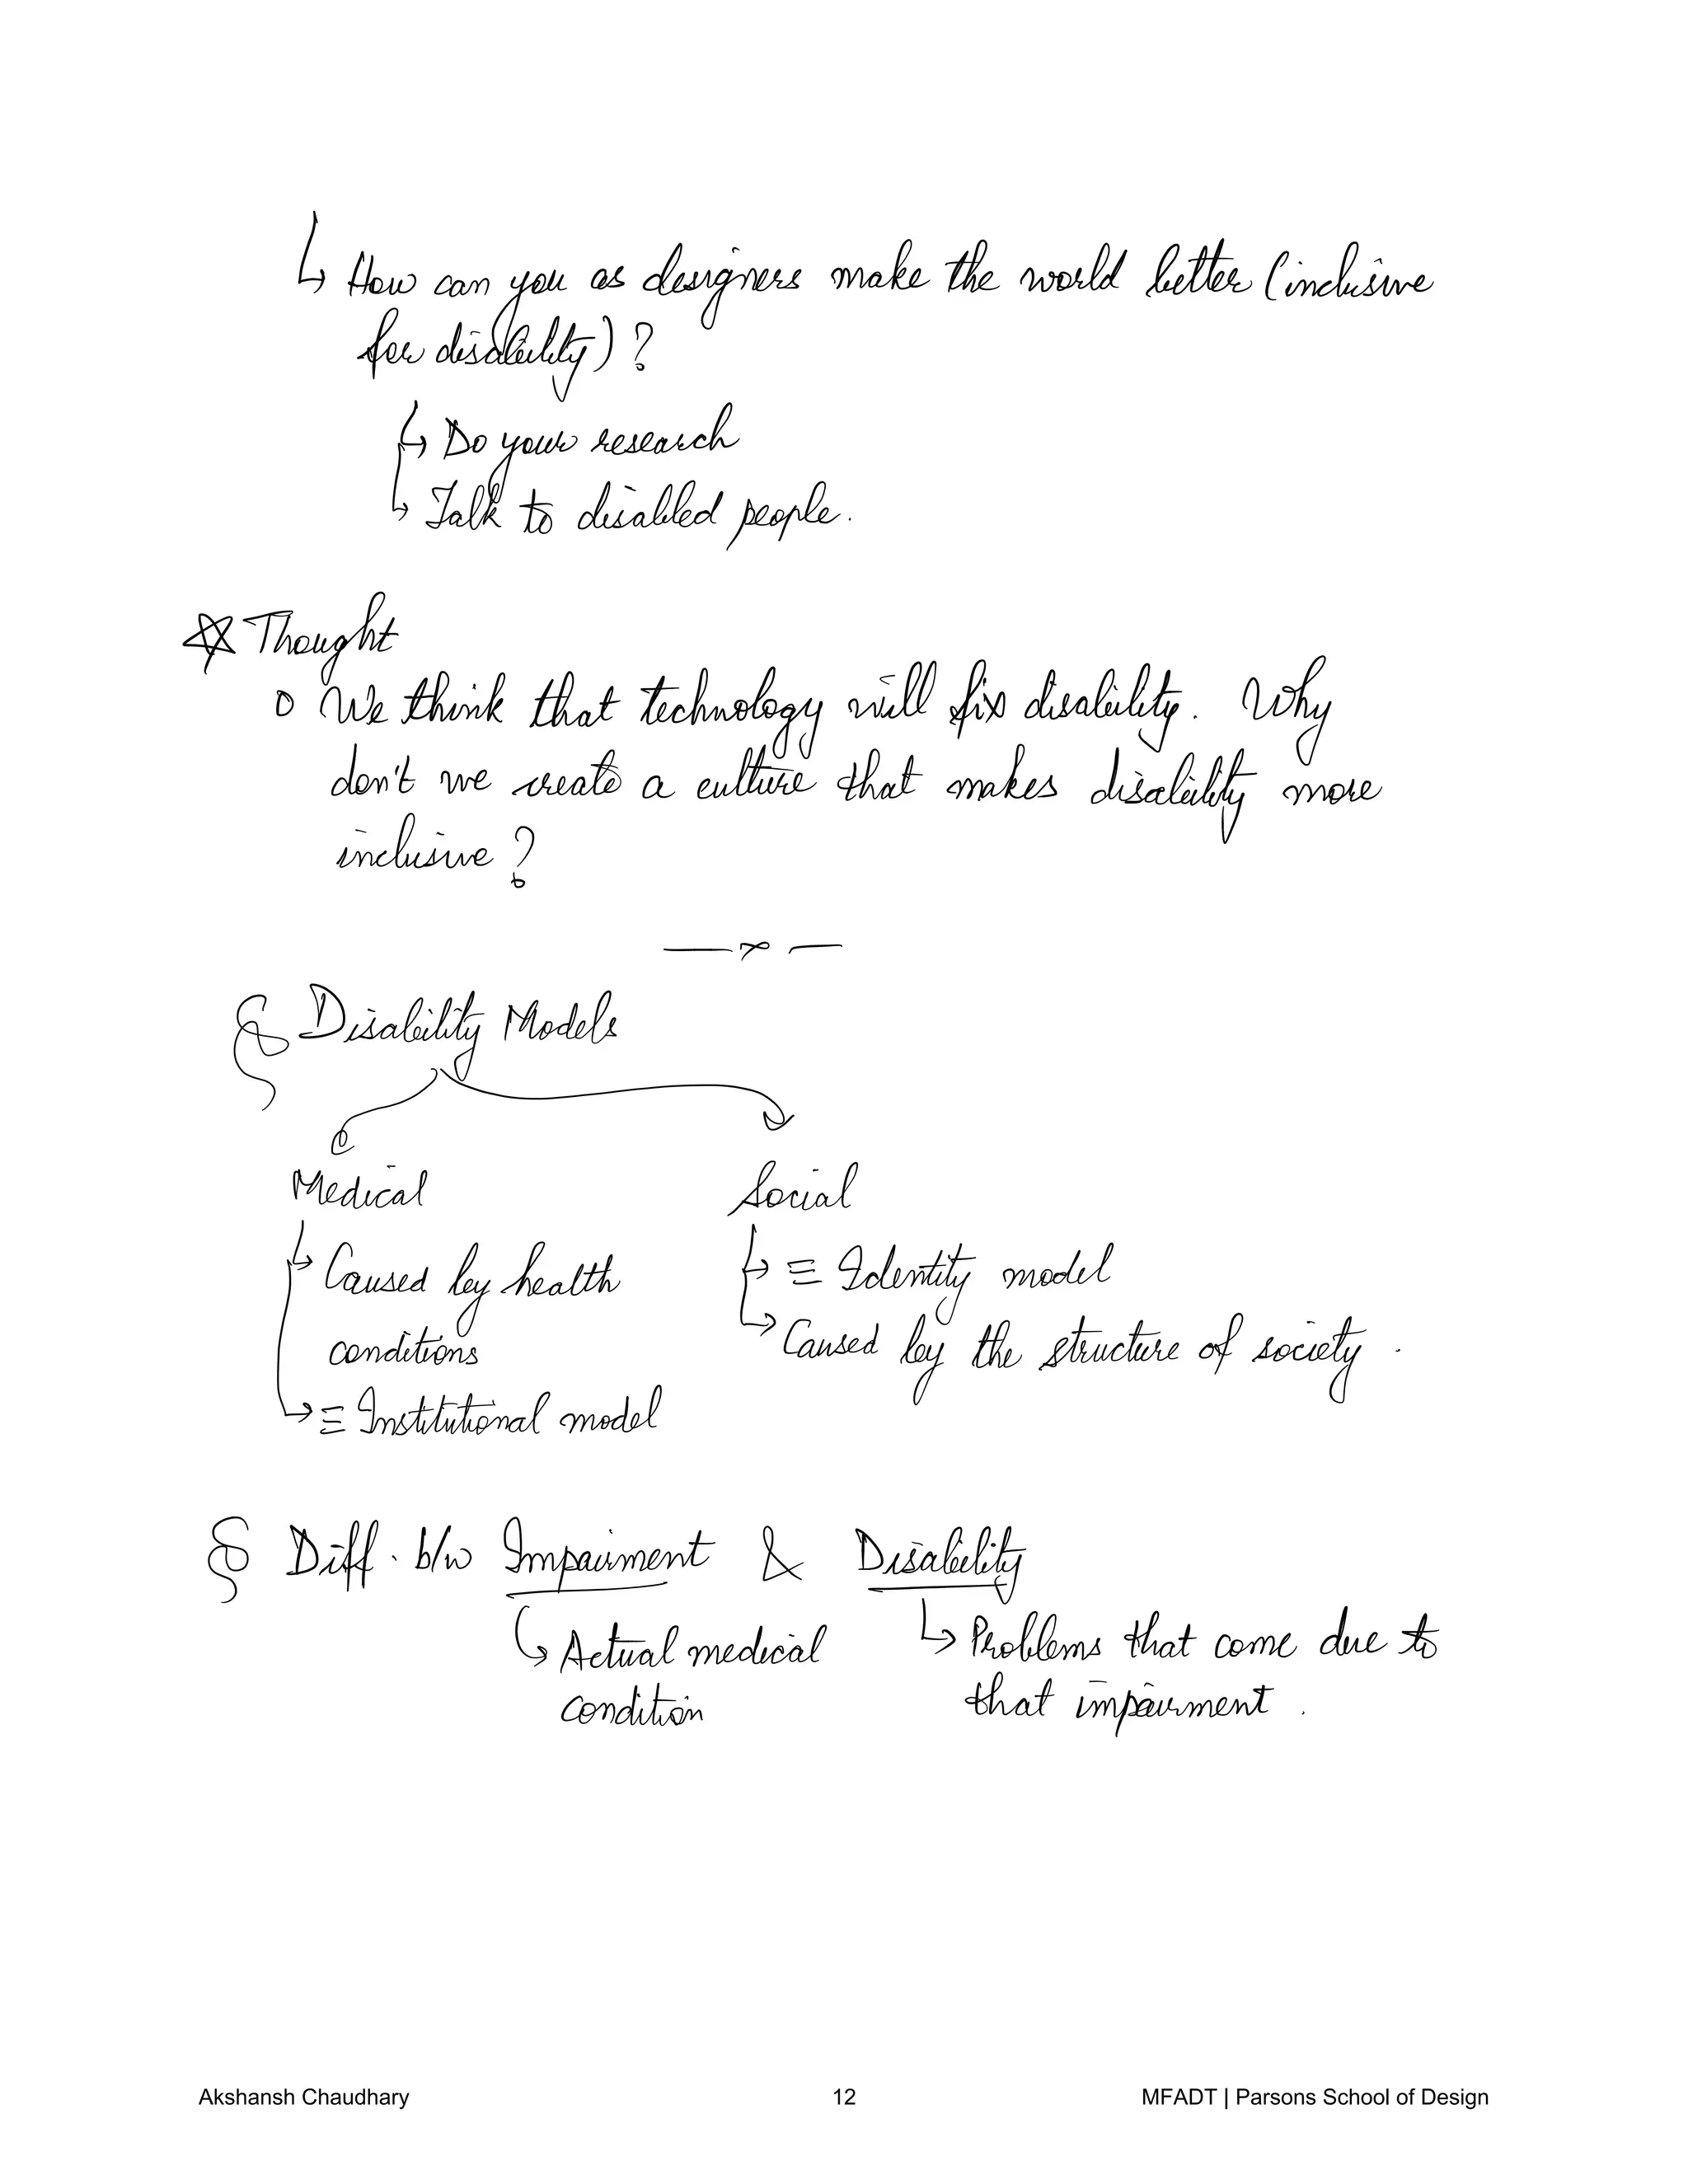 ↳ How can you as designers make the world better (inclusive
for disability)?
↳ Do your research
↳ Talk to disabled people.
☆ Thought
o We think that technology will fix disability. Why
don't we create a culture that makes disability more
inclusive?
— x —
§ Disability Models
Medical Social
↳ Caused by health ↳ ≡ Identity model
conditions ↳ Caused by the structure of society.
↳ ≡ Institutional model
§ Diff. b/w Impairment & Disability
↳ Actual medical ↳ Problems that come due to
condition that impairment.
Akshansh Chaudhary 12 MFADT | Parsons School of Design